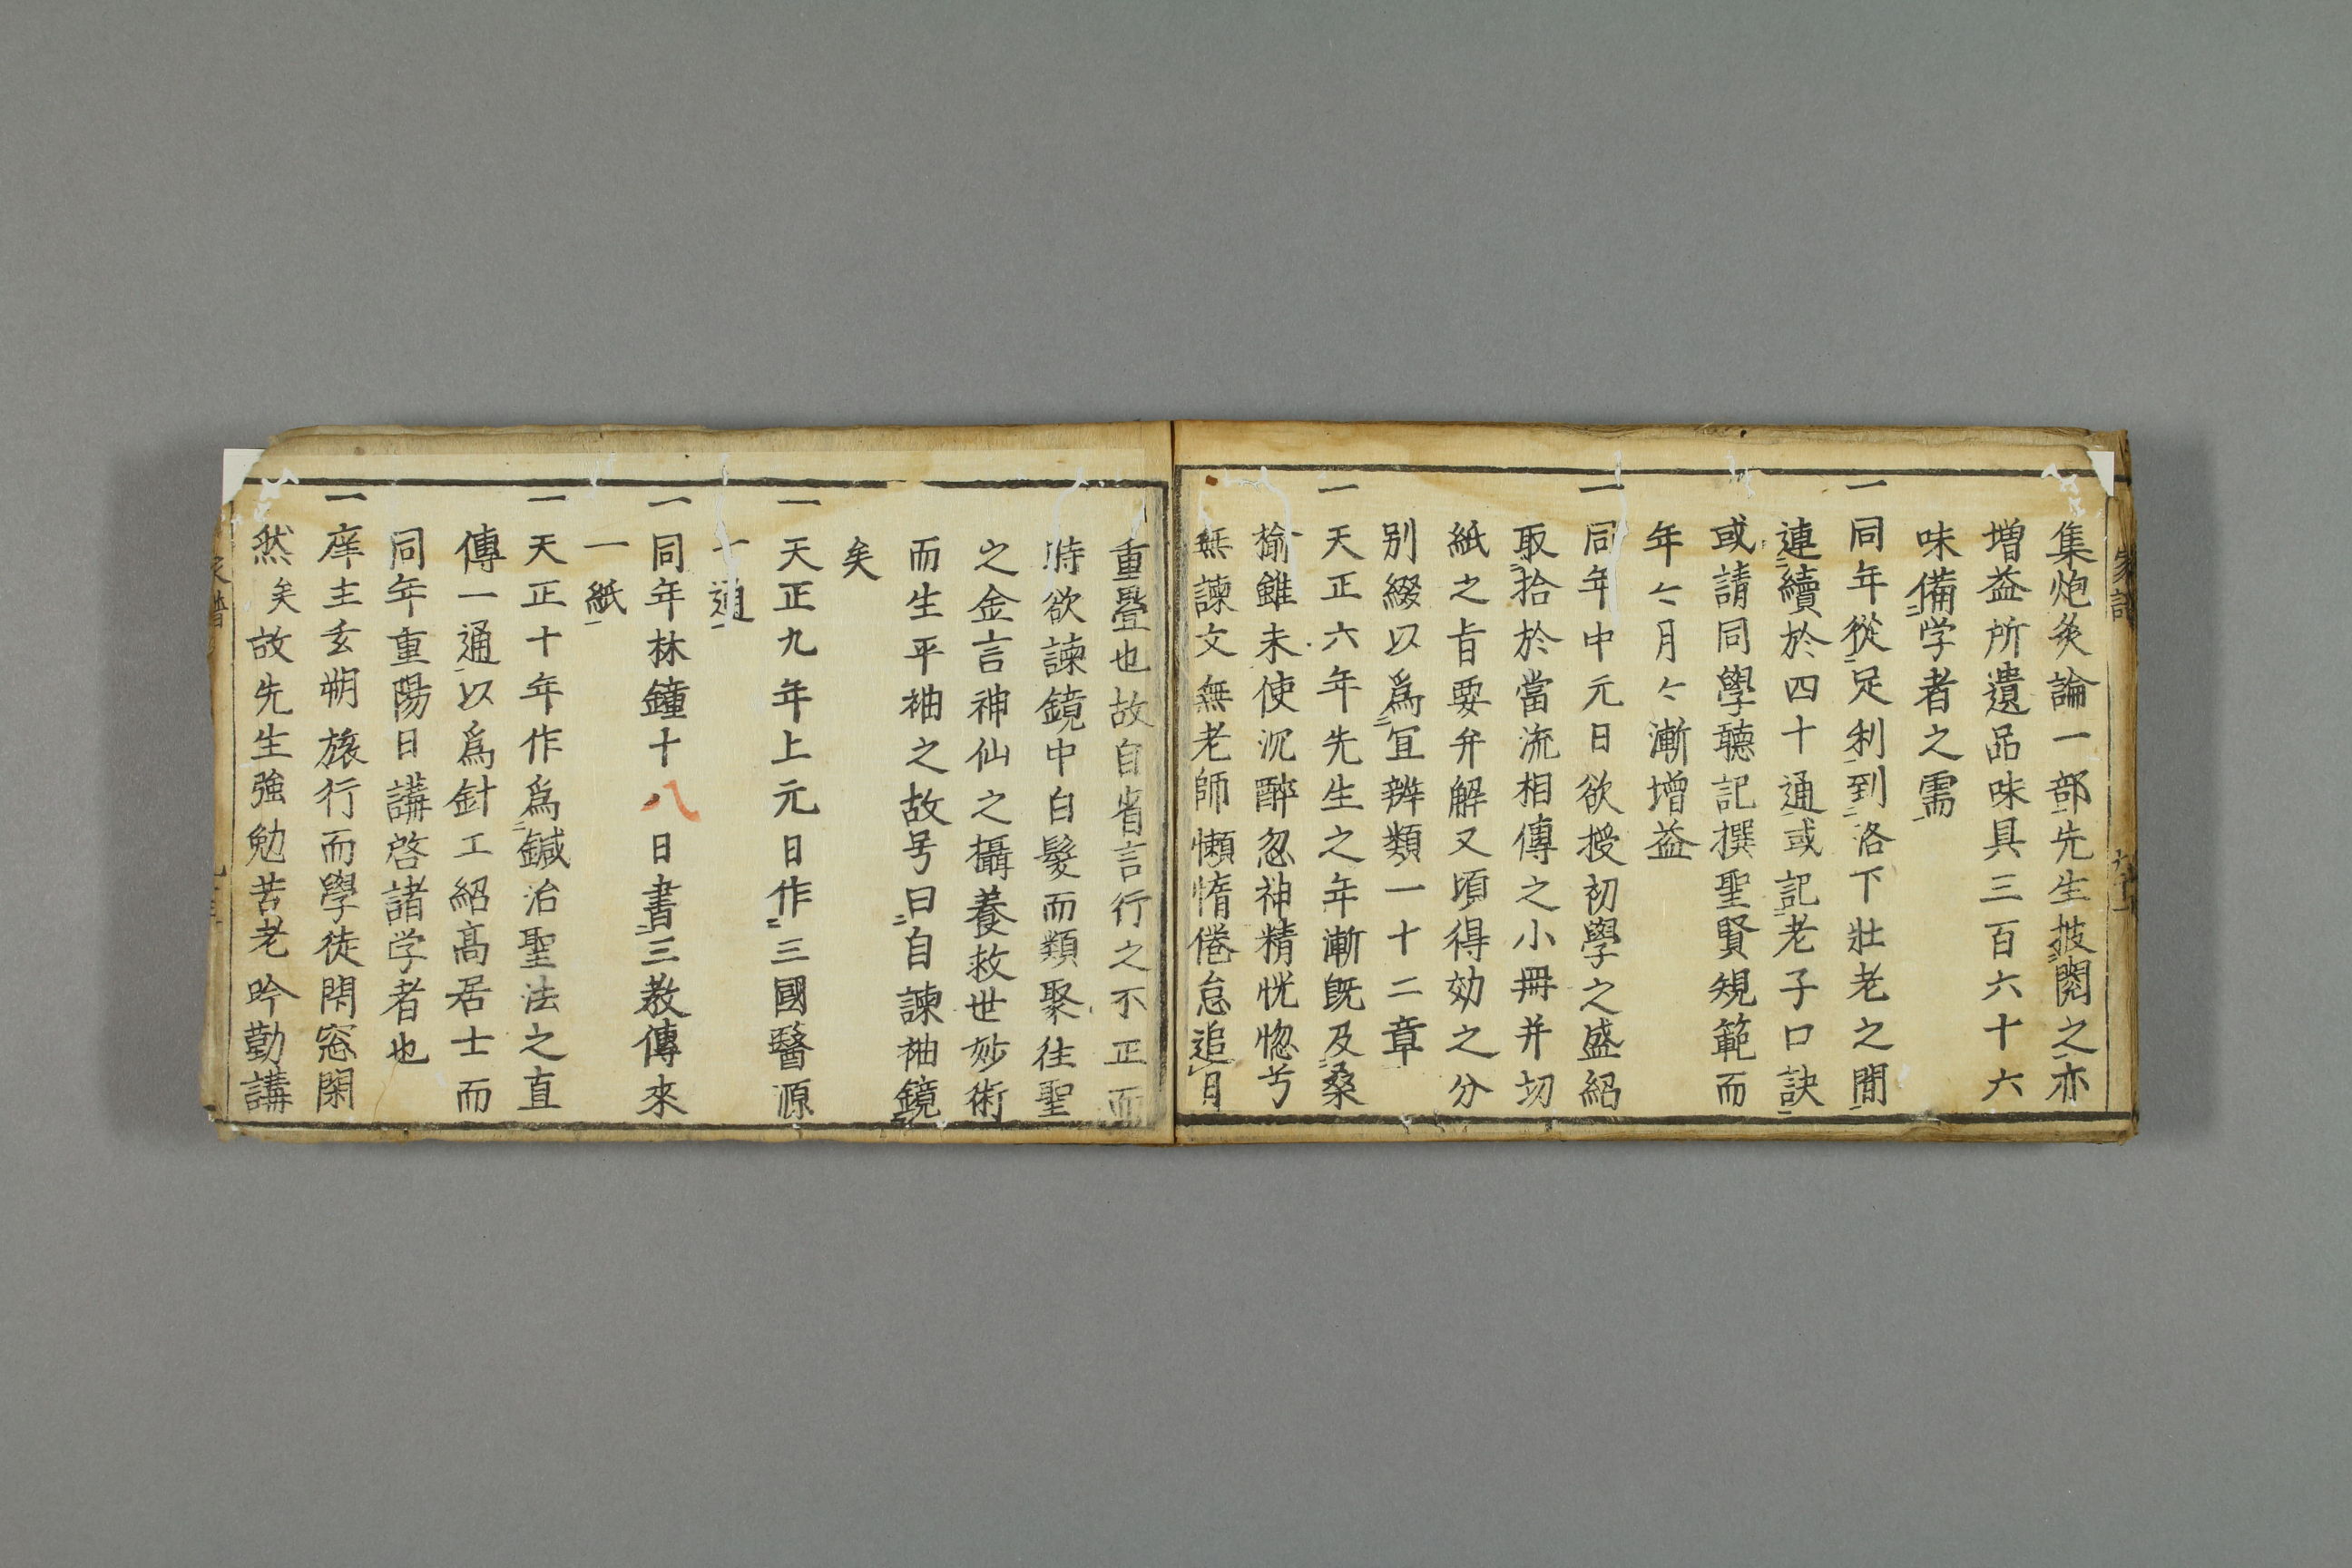 集炮炙論一部先生披閲之亦
増益所遺品味具三百六十六
味備学者之需
一同年從足利到洛下壯老之間
連續於四十通或記老子口訣
或請同學聽記撰聖賢䂓範而
年々月々漸増益
一同年中元日欲授初學之盛紹
取拾於當流相傳之小冊并切
紙之旨要弁解又頃得効之分
别綴以爲宜辨類一十二章
一天正六年先生之年漸既及桑
榆雖未使沉醉忽神精恍惚兮
無諫文無老師懶惰倦怠追日
重疊也故自省言行之不正而
時欲諫鏡中白髮而類聚往聖
之金言神仙之攝養救世妙術
而生平袖之故号曰自諫袖鏡
矣
一天正九年上元日作三國醫源
一通
一同年林鐘十八日書三教傳來
一紙
一天正十年作爲鍼治聖法之直
傳一通以爲針工紹髙居士而
同年重陽日講啓諸学者也
一庠主玄朔旅行而學徒閇窓閑
然矣故先生強勉苦老吟勤講